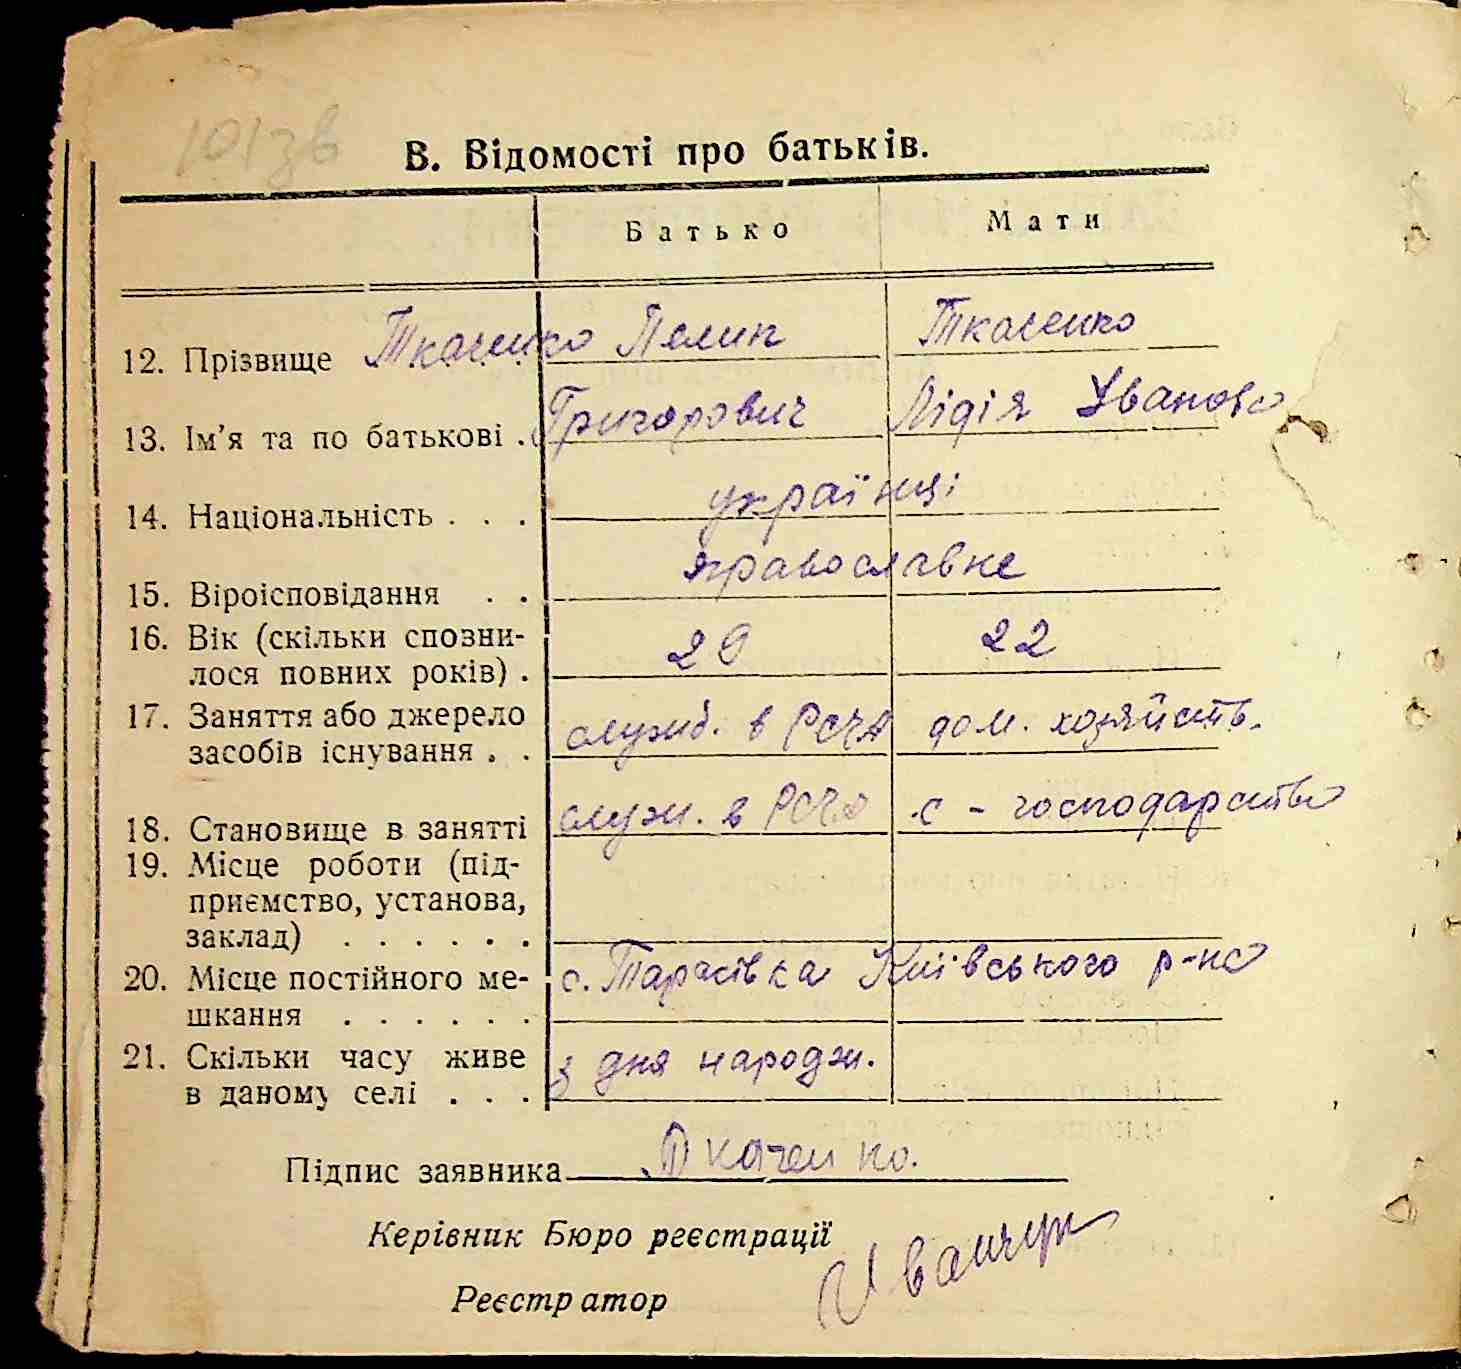 101зв
В. Відомості про батьків.
Батько Мати
12. Прізвище Ткаченко Пилип Ткаченко
13. Ім’я та по батькові . Григорович Лідія Іванова
14. Національність . . . українці
15. Віроісповідання . . православне
16. Вік (скільки спозни-
лося повних років) . 29 22
17. Заняття або джерело
засобів існування . . служб. в РСЧА дом. хозяйств.
18. Становище в занятті служ. в РСЧА с-господарство
19. Місце роботи (під-
приємство, установа,
заклад) . . . . . .
20. Місце постійного ме- с. Тарасівка Київського р-на
шкання . . . . . .
21. Скільки часу живе з дня народж.
в даному селі . . .
Підпис заявника Ткаченко.
Керівник Бюро реєстрації
Реєстратор